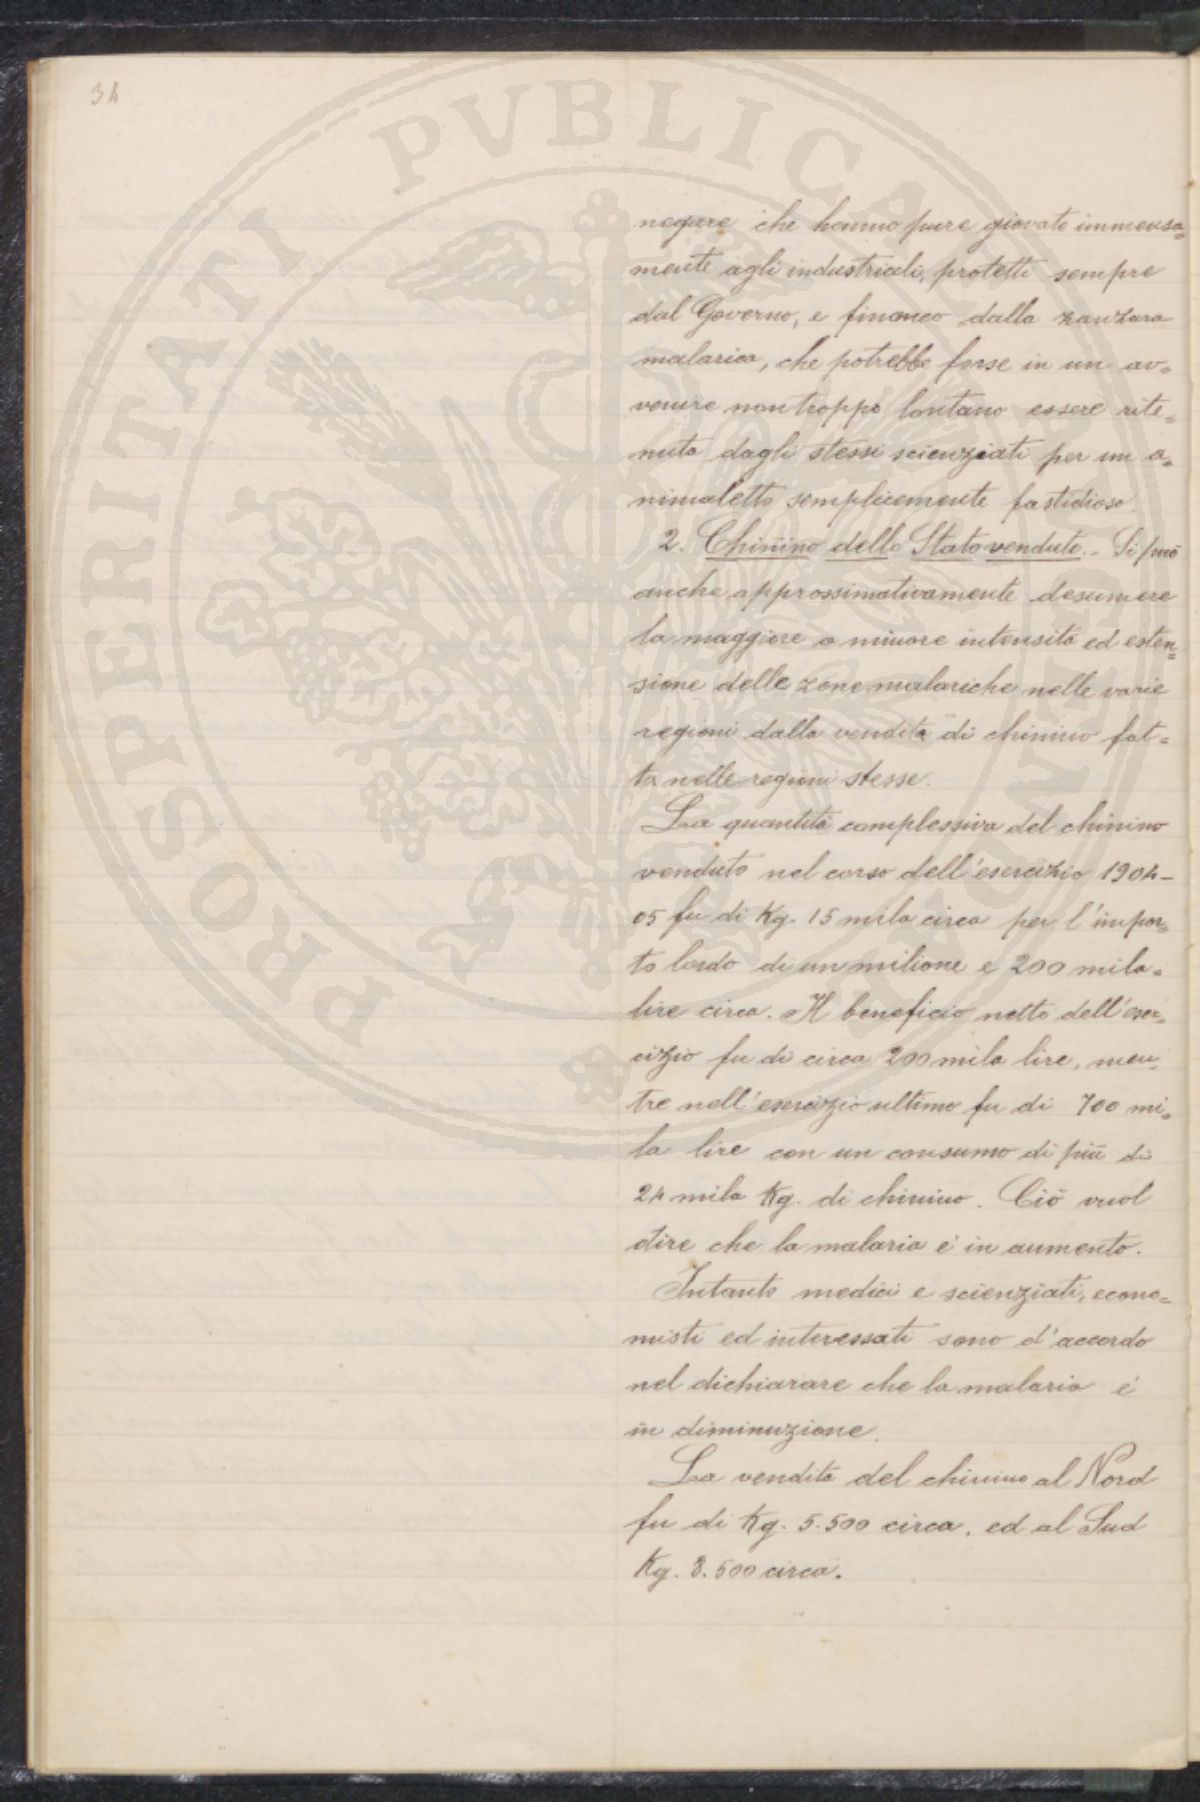 34
PROSPERITATI PVBLICAE
negare che hanno pure giovato immensa=
mente agli industriali, protetti sempre
dal Governo, e financo dalla zanzara
malarica, che potrebbe forse in un av=
venire non troppo lontano essere rite=
nuta dagli stessi scienziati per un a=
nimaletto semplicemente fastidioso.
2. Chinino dello Stato venduto. - Si può
anche approssimativamente desumere
la maggiore o minore intensità ed esten=
sione delle zone malariche nelle varie
regioni dalla vendita di chinino fat=
ta nelle regioni stesse.
La quantità complessiva del chinino
venduto nel corso dell'esercizio 1904-
05 fu di Kg. 15 mila circa per l'impor=
to lordo di un milione e 200 mila
lire circa. Il beneficio netto dell'eser=
cizio fu di circa 200 mila lire, men=
tre nell'esercizio ultimo fu di 700 mi=
la lire con un consumo di più di
24 mila Kg. di chinino. Ciò vuol
dire che la malaria è in aumento.
Intanto medici e scienziati, econo=
misti ed interessati sono d'accordo
nel dichiarare che la malaria è
in diminuzione.
La vendita del chinino al Nord
fu di Kg. 5.500 circa, ed al Sud
Kg. 8.500 circa.